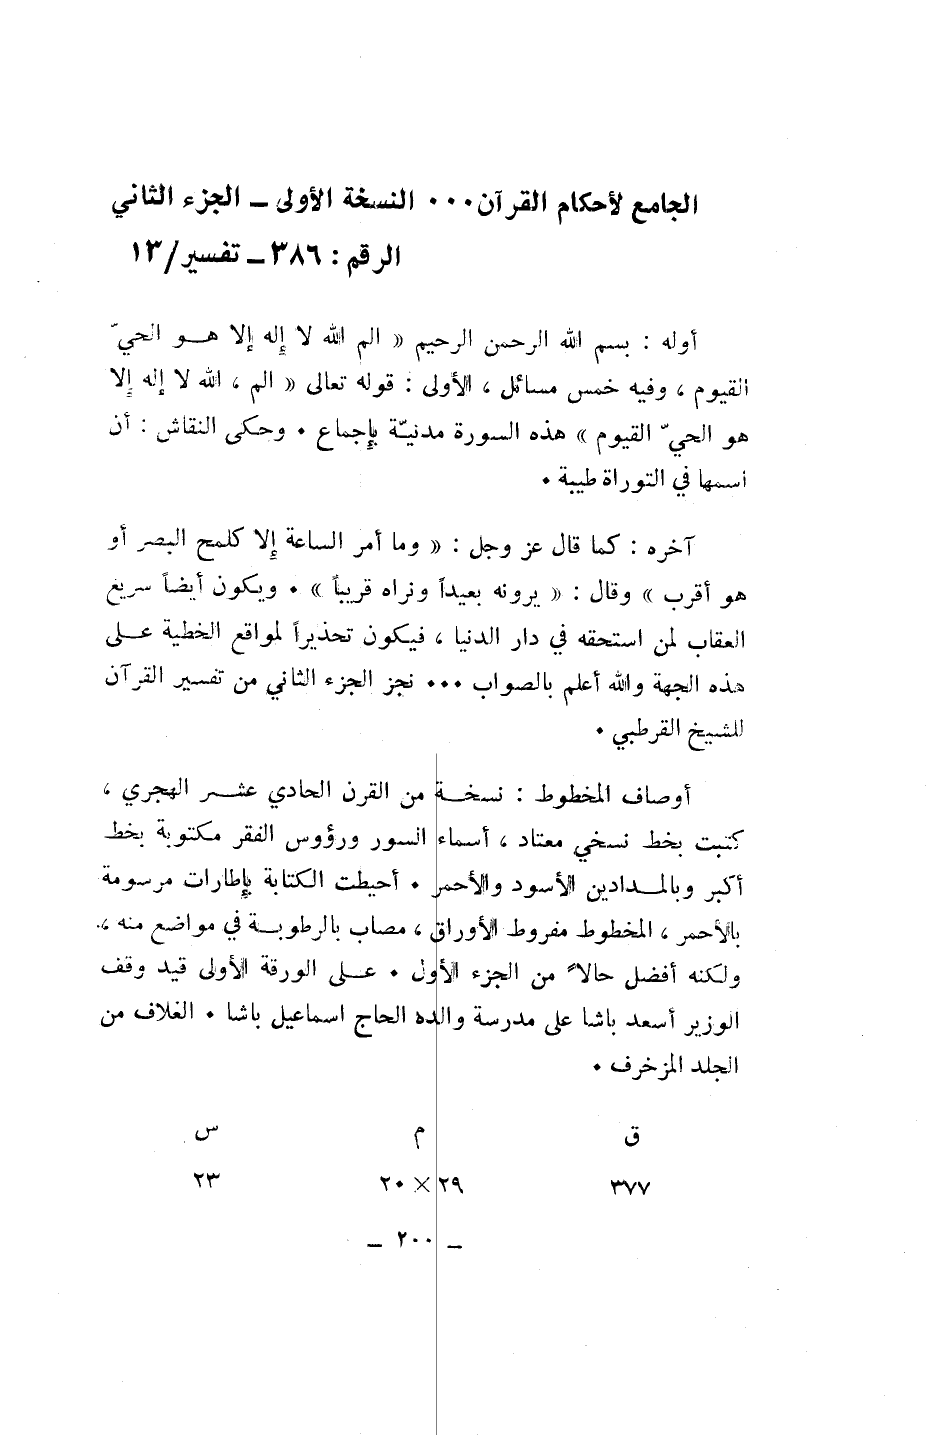 الجامع لأحكام القرآن ٠٠٠ النسخة الأولى ــ الجزء الثاني
الرقم : ٣٨٦ ــ تفسير/١٣
أوله : بسم الله الرحمن الرحيم « الم الله لا إله إلا هــو الحيّ
القيوم ، وفيه خمس مسائل ، الأولى : قوله تعالى « الم ، الله لا إله إلا
هو الحيّ القيوم » هذه السورة مدنيّة بإجماع ٠ وحكى النقاش : أن
اسمها في التوراة طيبة ٠
آخره : كما قال عز وجل : « وما أمر الساعة إلا كلمح البصر أو
هو أقرب » وقال : « يرونه بعيداً ونراه قريباً » ٠ ويكون أيضاً سريع
العقاب لمن استحقه في دار الدنيا ، فيكون تحذيراً لمواقع الخطية علــى
هذه الجهة والله أعلم بالصواب ٠٠٠ نجز الجزء الثاني من تفسير القرآن
للشيخ القرطبي ٠
أوصاف المخطوط : نسخــة من القرن الحادي عشــر الهجري ،
كتبت بخط نسخي معتاد ، أسماء السور ورؤوس الفقر مكتوبة بخط
أكبر وبالمــدادين الأسود والأحمر ٠ أحيطت الكتابة بإطارات مرسومة
بالأحمر ، المخطوط مفروط الأوراق ، مصاب بالرطوبــة في مواضع منه ،
ولكنه أفضل حالاً من الجزء الأول ٠ علــى الورقة الأولى قيد وقف
الوزير أسعد باشا على مدرسة والده الحاج اسماعيل باشا ٠ الغلاف من
الجلد المزخرف ٠
ق م س
٣٧٧ ٢٩×٢٠ ٢٣
ــ ٢٠٠ ــ